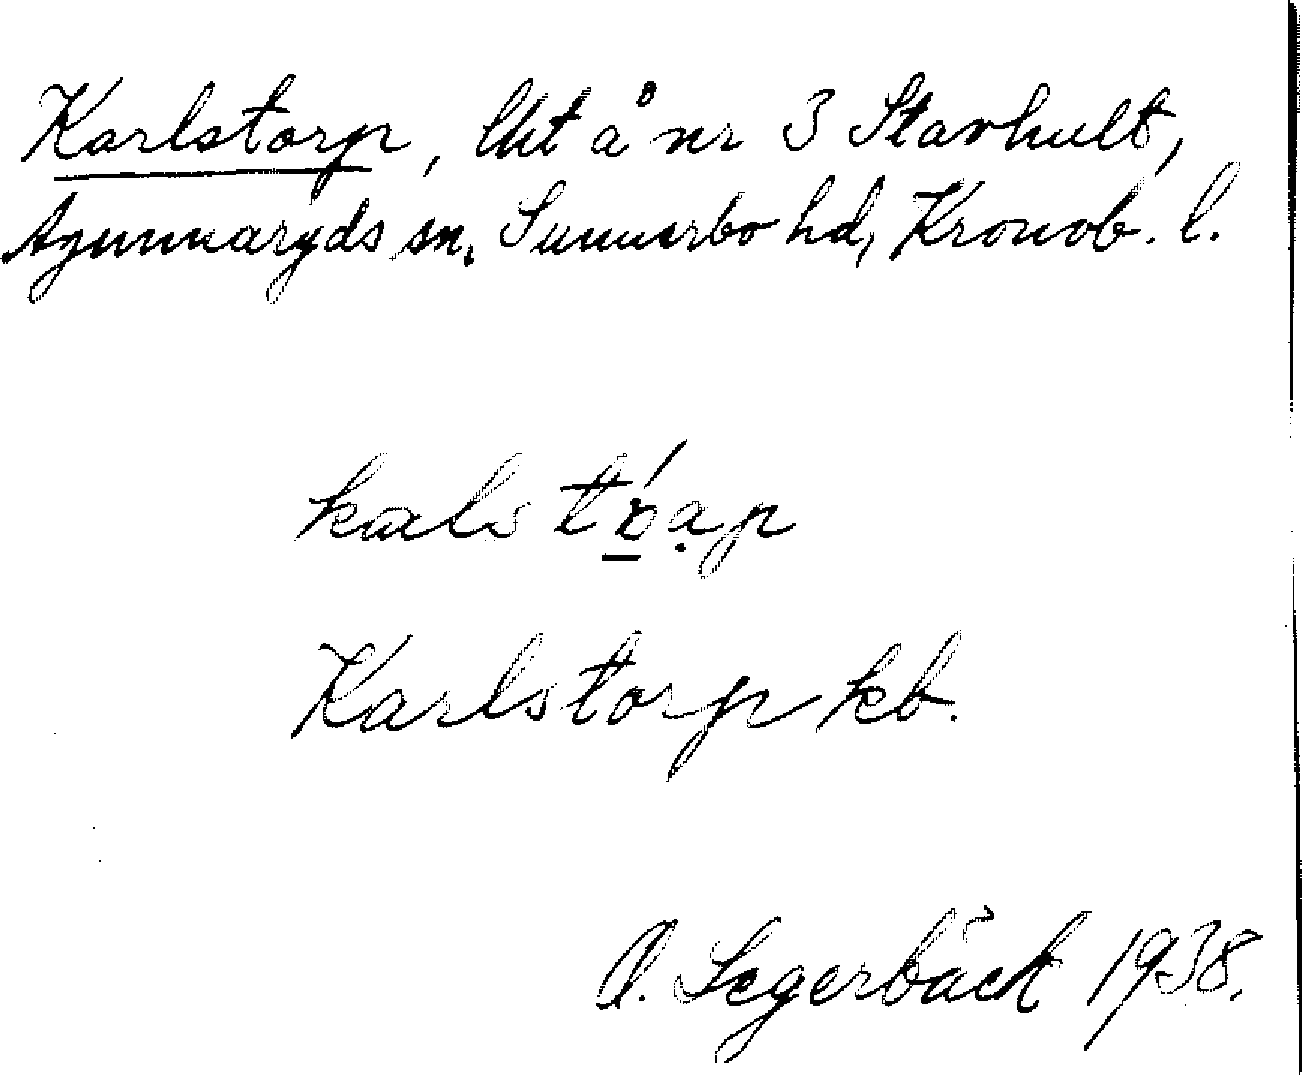 Karlstorp, Ut å nr 3 Stavhult,
Agunnaryds sn, Sunnerbo hd, Kronob. l.
Karlstorp kb.
Segerbäck 1938.